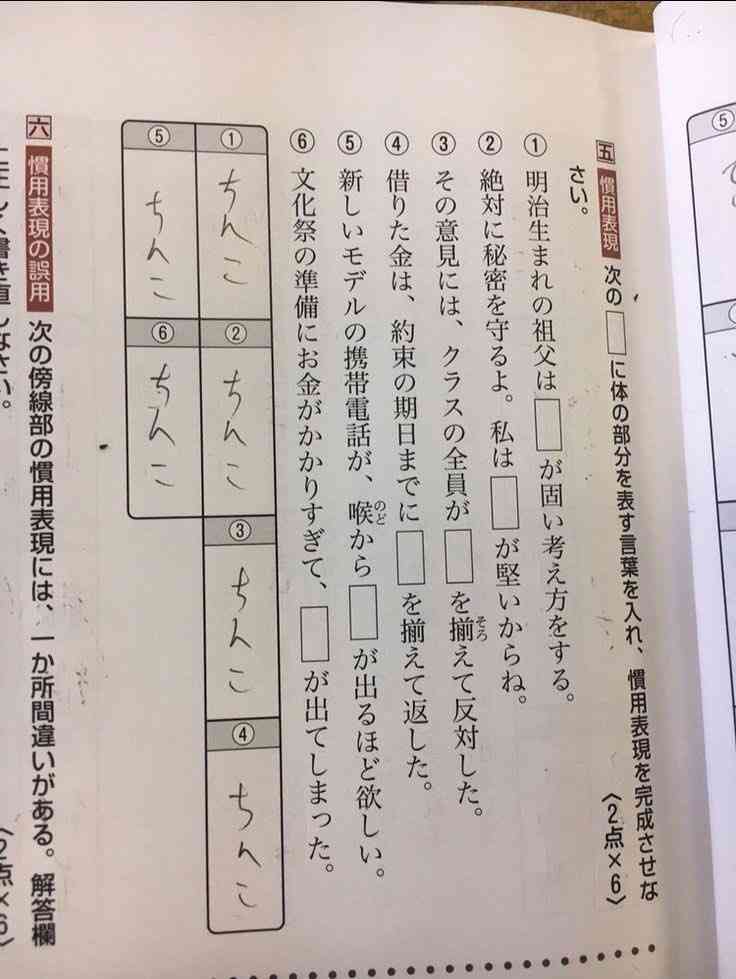 五 慣用表現 次の□に体の部分を表す言葉を入れ、慣用表現を完成させな
さい。
〈2点×6〉
① 明治生まれの祖父は□が固い考え方をする。
② 絶対に秘密を守るよ。私は□が堅いからね。
③ その意見には、クラスの全員が□を揃えて反対した。
そろ
④ 借りた金は、約束の期日までに□を揃えて返した。
⑤ 新しいモデルの携帯電話が、喉から□が出るほど欲しい。
のど
⑥ 文化祭の準備にお金がかかりすぎて、□が出てしまった。
① ちんこ
② ちんこ
③ ちんこ
④ ちんこ
⑤ ちんこ
⑥ ちんこ
六 慣用表現の誤用 次の傍線部の慣用表現には、一か所間違いがある。解答欄
に正しく書き直しなさい。
〈2点×6〉
⑤